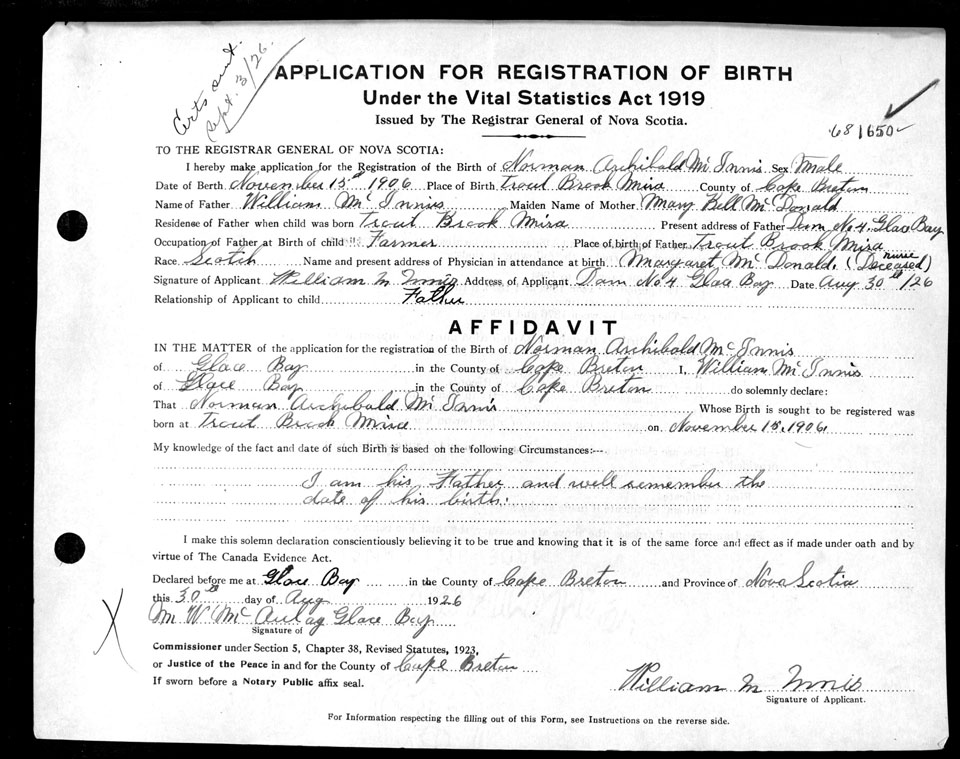 Certs sent.
Sept. 3/26.
APPLICATION FOR REGISTRATION OF BIRTH
Under the Vital Statistics Act 1919
Issued by The Registrar General of Nova Scotia.
68 1650
TO THE REGISTRAR GENERAL OF NOVA SCOTIA:
I hereby make application for the Registration of the Birth of Norman Archibald Mc Innis Sex Male
Date of Berth November 15th 1906 Place of Birth Trout Brook Mira County of Cape Breton
Name of Father William Mc Innis Maiden Name of Mother Mary Bell Mc Donald
Residence of Father when child was born Trout Brook Mira Present address of Father Dam No 4. Glace Bay
Occupation of Father at Birth of child Farmer Place of birth of Father Trout Brook Mira
Race Scotch Name and present address of Physician in attendance at birth Margaret Mc Donald. nurse (Deceased)
Signature of Applicant William M Innis Address of Applicant Dam No 4 Glace Bay Date Aug 30th/26
Relationship of Applicant to child Father
AFFIDAVIT
IN THE MATTER of the application for the registration of the Birth of Norman Archibald Mc Innis
of Glace Bay in the County of Cape Breton I, William Mc Innis
of Glace Bay in the County of Cape Breton do solemnly declare:
That Norman Archibald Mc Innis Whose Birth is sought to be registered was
born at Trout Brook Mira on November 15, 1906
My knowledge of the fact and date of such Birth is based on the following Circumstances:---
I am his Father and well remember the
date of his birth.
I make this solemn declaration conscientiously believing it to be true and knowing that it is of the same force and effect as if made under oath and by
virtue of The Canada Evidence Act.
Declared before me at Glace Bay in the County of Cape Breton and Province of Nova Scotia
this 30th day of Aug 1926
M W McAulay Glace Bay
Signature of
Commissioner under Section 5, Chapter 38, Revised Statutes, 1923,
or Justice of the Peace in and for the County of Cape Breton
If sworn before a Notary Public affix seal.
William M Innis
Signature of Applicant.
For Information respecting the filling out of this Form, see Instructions on the reverse side.